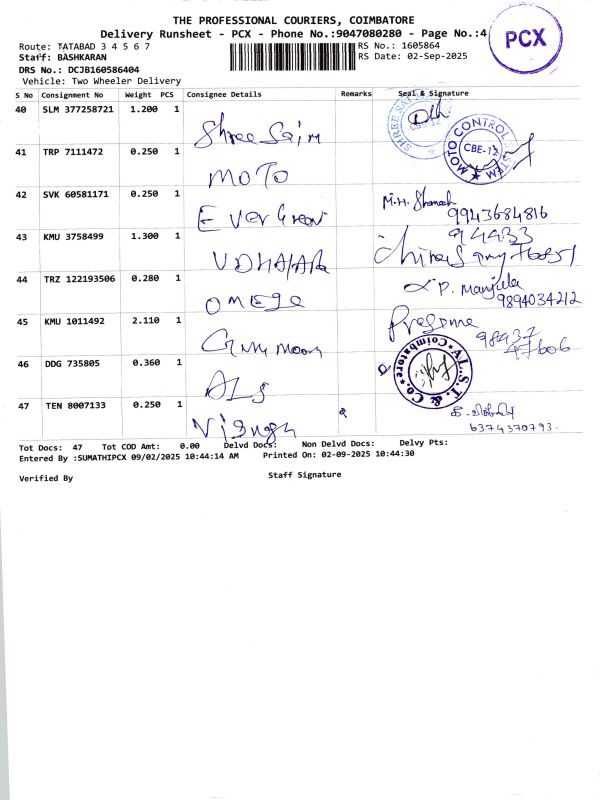 THE PROFESSIONAL COURIERS, COIMBATORE
Delivery Runsheet - PCX - Phone No.:9047080280 - Page No.:4
PCX
Route: TATABAD 3 4 5 6 7 RS No.: 1605864
Staff: BASHKARAN RS Date: 02-Sep-2025
DRS No.: DCJB160586404
Vehicle: Two Wheeler Delivery
S No Consignment No Weight PCS Consignee Details Remarks Seal & Signature
40 SLM 377258721 1.200 1 Shree Sairm
41 TRP 7111472 0.250 1 MOTO MOTO CONTROL SYSTEM CBE-12
42 SVK 60581171 0.250 1 Evergreen M.H. 9943684816
43 KMU 3758499 1.300 1
44 TRZ 122193506 0.280 1 OMEGA P. Manjula
9894034212
45 KMU 1011492 2.110 1 98437
47606
46 DDG 735805 0.360 1 ALS V.L.S.T. & Co. Coimbatore
47 TEN 8007133 0.250 1
6374370793.
Tot Docs: 47 Tot COD Amt: 0.00 Delvd Docs: Non Delvd Docs: Delvy Pts:
Entered By :SUMATHIPCX 09/02/2025 10:44:14 AM Printed On: 02-09-2025 10:44:30
Verified By Staff Signature